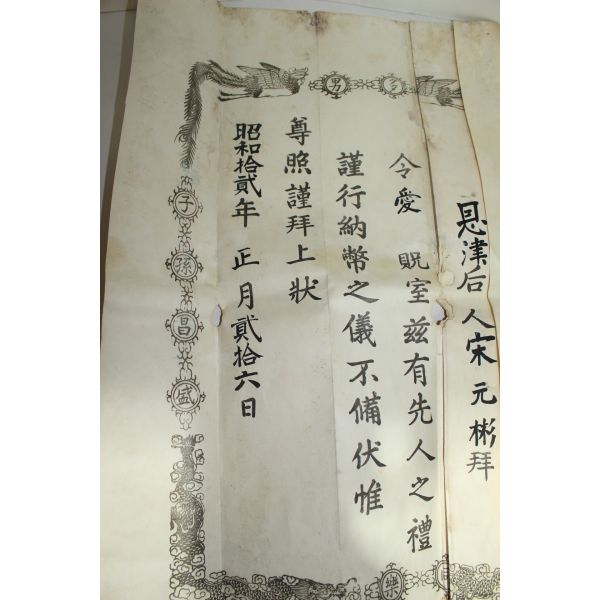 恩津后人宋元彬拜
令愛 貺室茲有先人之禮
謹行納幣之儀不備伏惟
尊照謹拜上狀
昭和拾貳年 正月貳拾六日
男
多
子孫昌盛
樂